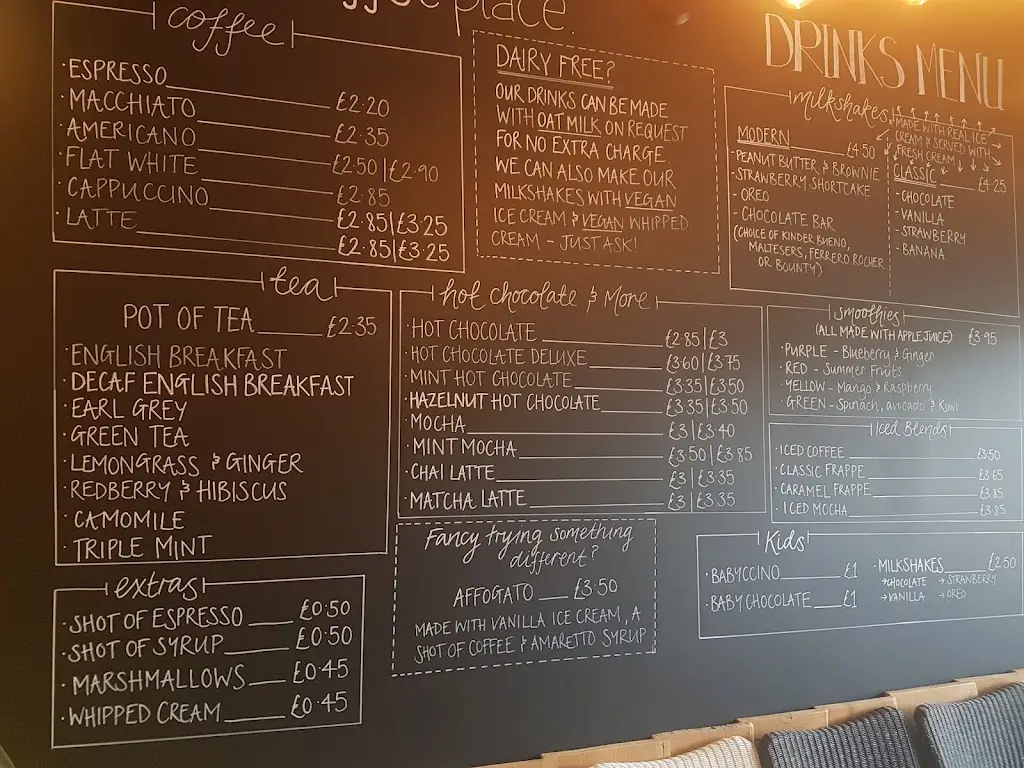 coffee place.
DRINKS MENU
coffee
· ESPRESSO £2.20
· MACCHIATO £2.35
· AMERICANO £2.50|£2.90
· FLAT WHITE £2.85
· CAPPUCCINO £2.85|£3.25
· LATTE £2.85|£3.25
DAIRY FREE?
OUR DRINKS CAN BE MADE
WITH OAT MILK ON REQUEST
FOR NO EXTRA CHARGE
WE CAN ALSO MAKE OUR
MILKSHAKES WITH VEGAN
ICE CREAM & VEGAN WHIPPED
CREAM - JUST ASK!
milkshakes
MADE WITH REAL ICE
CREAM & SERVED WITH
FRESH CREAM
MODERN £4.50
- PEANUT BUTTER & BROWNIE
- STRAWBERRY SHORTCAKE
- OREO
- CHOCOLATE BAR
(CHOICE OF KINDER BUENO,
MALTESERS, FERRERO ROCHER
OR BOUNTY)
CLASSIC £4.25
- CHOCOLATE
- VANILLA
- STRAWBERRY
- BANANA
tea
POT OF TEA £2.35
· ENGLISH BREAKFAST
· DECAF ENGLISH BREAKFAST
· EARL GREY
· GREEN TEA
· LEMONGRASS & GINGER
· REDBERRY & HIBISCUS
· CAMOMILE
· TRIPLE MINT
hot chocolate & More
· HOT CHOCOLATE £2.85|£3
· HOT CHOCOLATE DELUXE £3.60|£3.75
· MINT HOT CHOCOLATE £3.35|£3.50
· HAZELNUT HOT CHOCOLATE £3.35|£3.50
· MOCHA £3|£3.40
· MINT MOCHA £3.50|£3.85
· CHAI LATTE £3|£3.35
· MATCHA LATTE £3|£3.35
smoothies
(ALL MADE WITH APPLE JUICE) £3.95
· PURPLE - Blueberry & Ginger
· RED - Summer Fruits
· YELLOW - Mango & Raspberry
· GREEN - Spinach, avocado & Kiwi
Iced Blends
· ICED COFFEE £3.50
· CLASSIC FRAPPE £3.65
· CARAMEL FRAPPE £3.85
· ICED MOCHA £3.85
extras
· SHOT OF ESPRESSO £0.50
· SHOT OF SYRUP £0.50
· MARSHMALLOWS £0.45
· WHIPPED CREAM £0.45
Fancy trying something
different?
AFFOGATO £3.50
MADE WITH VANILLA ICE CREAM, A
SHOT OF COFFEE & AMARETTO SYRUP
Kids
· BABYCCINO £1
· BABY CHOCOLATE £1
· MILKSHAKES £2.50
→ CHOCOLATE → STRAWBERRY
→ VANILLA → OREO